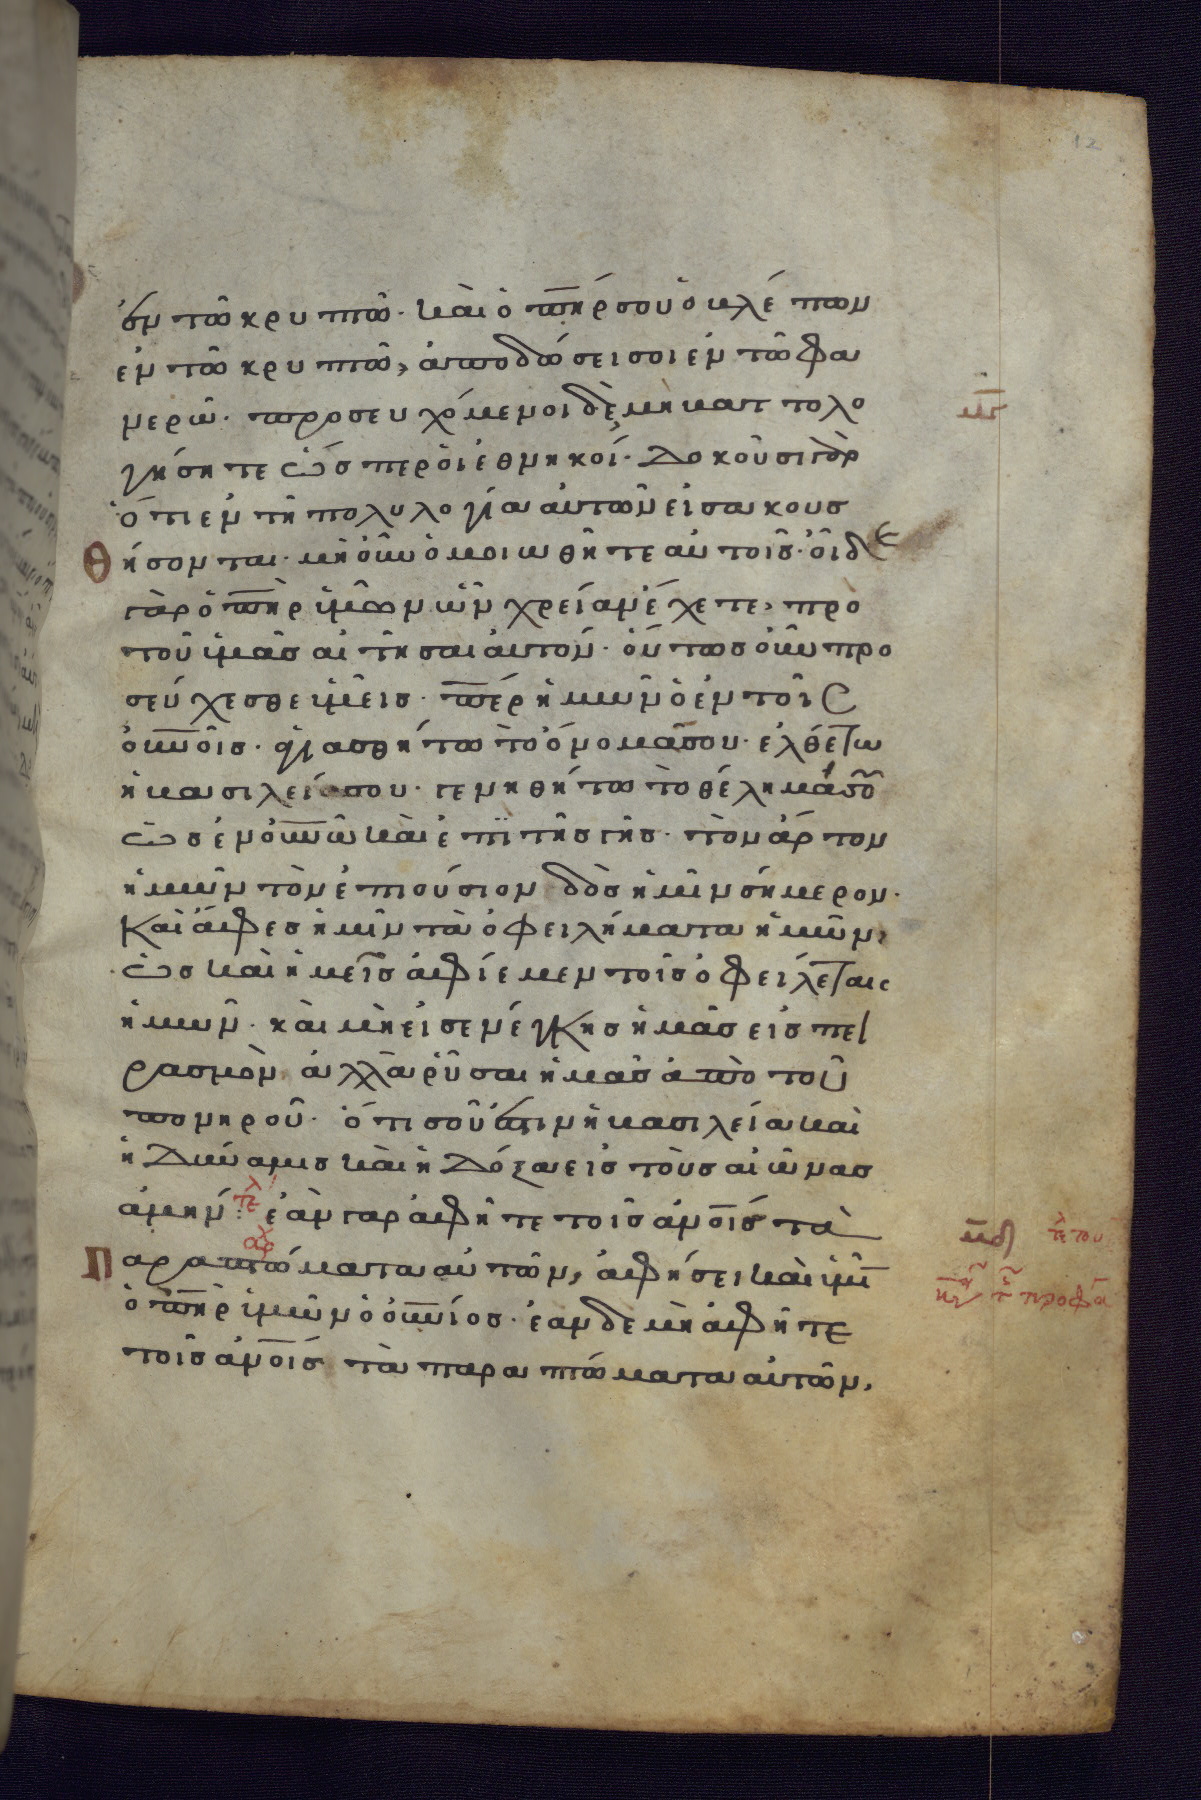 12
ἐν τῶ κρυπτῶ· καὶ ὁ πη̅ρ σου ὁ βλέπων
ἐν τῶ κρυπτῶ, ἀποδώσει σοι ἐν τῶ φα
νερῶ· προσευχόμενοι δὲ μὴ βαττολο
γήσητε ὥσπερ ὁι ἐθνηκοί· δοκοῦσι γὰρ
ὅτι ἐν τῆ πολυλογία αὐτῶν εἰσακουσ
θήσονται· μὴ οὖν ὁμοιωθῆτε αὐτοῖς· οἶδε
γὰρ ὁ πη̅ρ ὑμῶν ὧν χρείαν ἔχετε, προ
τοῦ ὑμᾶς αἰτῆσαι αὐτόν· οὕτως οὖν προ
σεύχεσθε ὑμεῖς· πε̅ρ ἡμῶν ὁ ἐν τοῖς
οὐν̅οις· ἁγιασθήτω τὸ ὄνομά σου· ἐλθέτω
ἡ βασιλεία σου· γενηθήτω τὸ θέλημά σου
ὡς ἐν οὐν̅ω καὶ ἐπὶ τῆς γῆς· τὸν ἄρτον
ἡμῶν τὸν ἐπιούσιον δὸς ἡμῖν σήμερον·
Καὶ ἄφες ἡμῖν τὰ ὀφειλήματα ἡμῶν,
ὡς καὶ ἡμεῖς ἀφίεμεν τοῖς ὀφειλέταις
ἡμῶν· καὶ μὴ εἰσενέγκης ἡμᾶς εἰς πει
ρασμὸν ἀλλὰ ῥῦσαι ἡμᾶς ἀπὸ τοῦ
πονηροῦ· ὅτι σοῦ ἐστιν ἡ βασιλεία καὶ
ἡ δύναμις καὶ ἡ δόξα εἰς τοὺς αἰῶνας
ἀμήν· τελ ἐὰν γαρ ἀφῆτε τοῖς ἀν̅οις τὰ
αρχ
Παραπτώματα αὐτῶν, ἀφήσει καὶ ὑμῖ
ὁ πη̅ρ ὑμῶν ὁ οὐν̅ιος· ἐαν δε μὴ ἀφῆτε
τοῖς ἀν̅οις τὰ παραπτώματα αὐτῶν,
μγ
μδ
τελ του